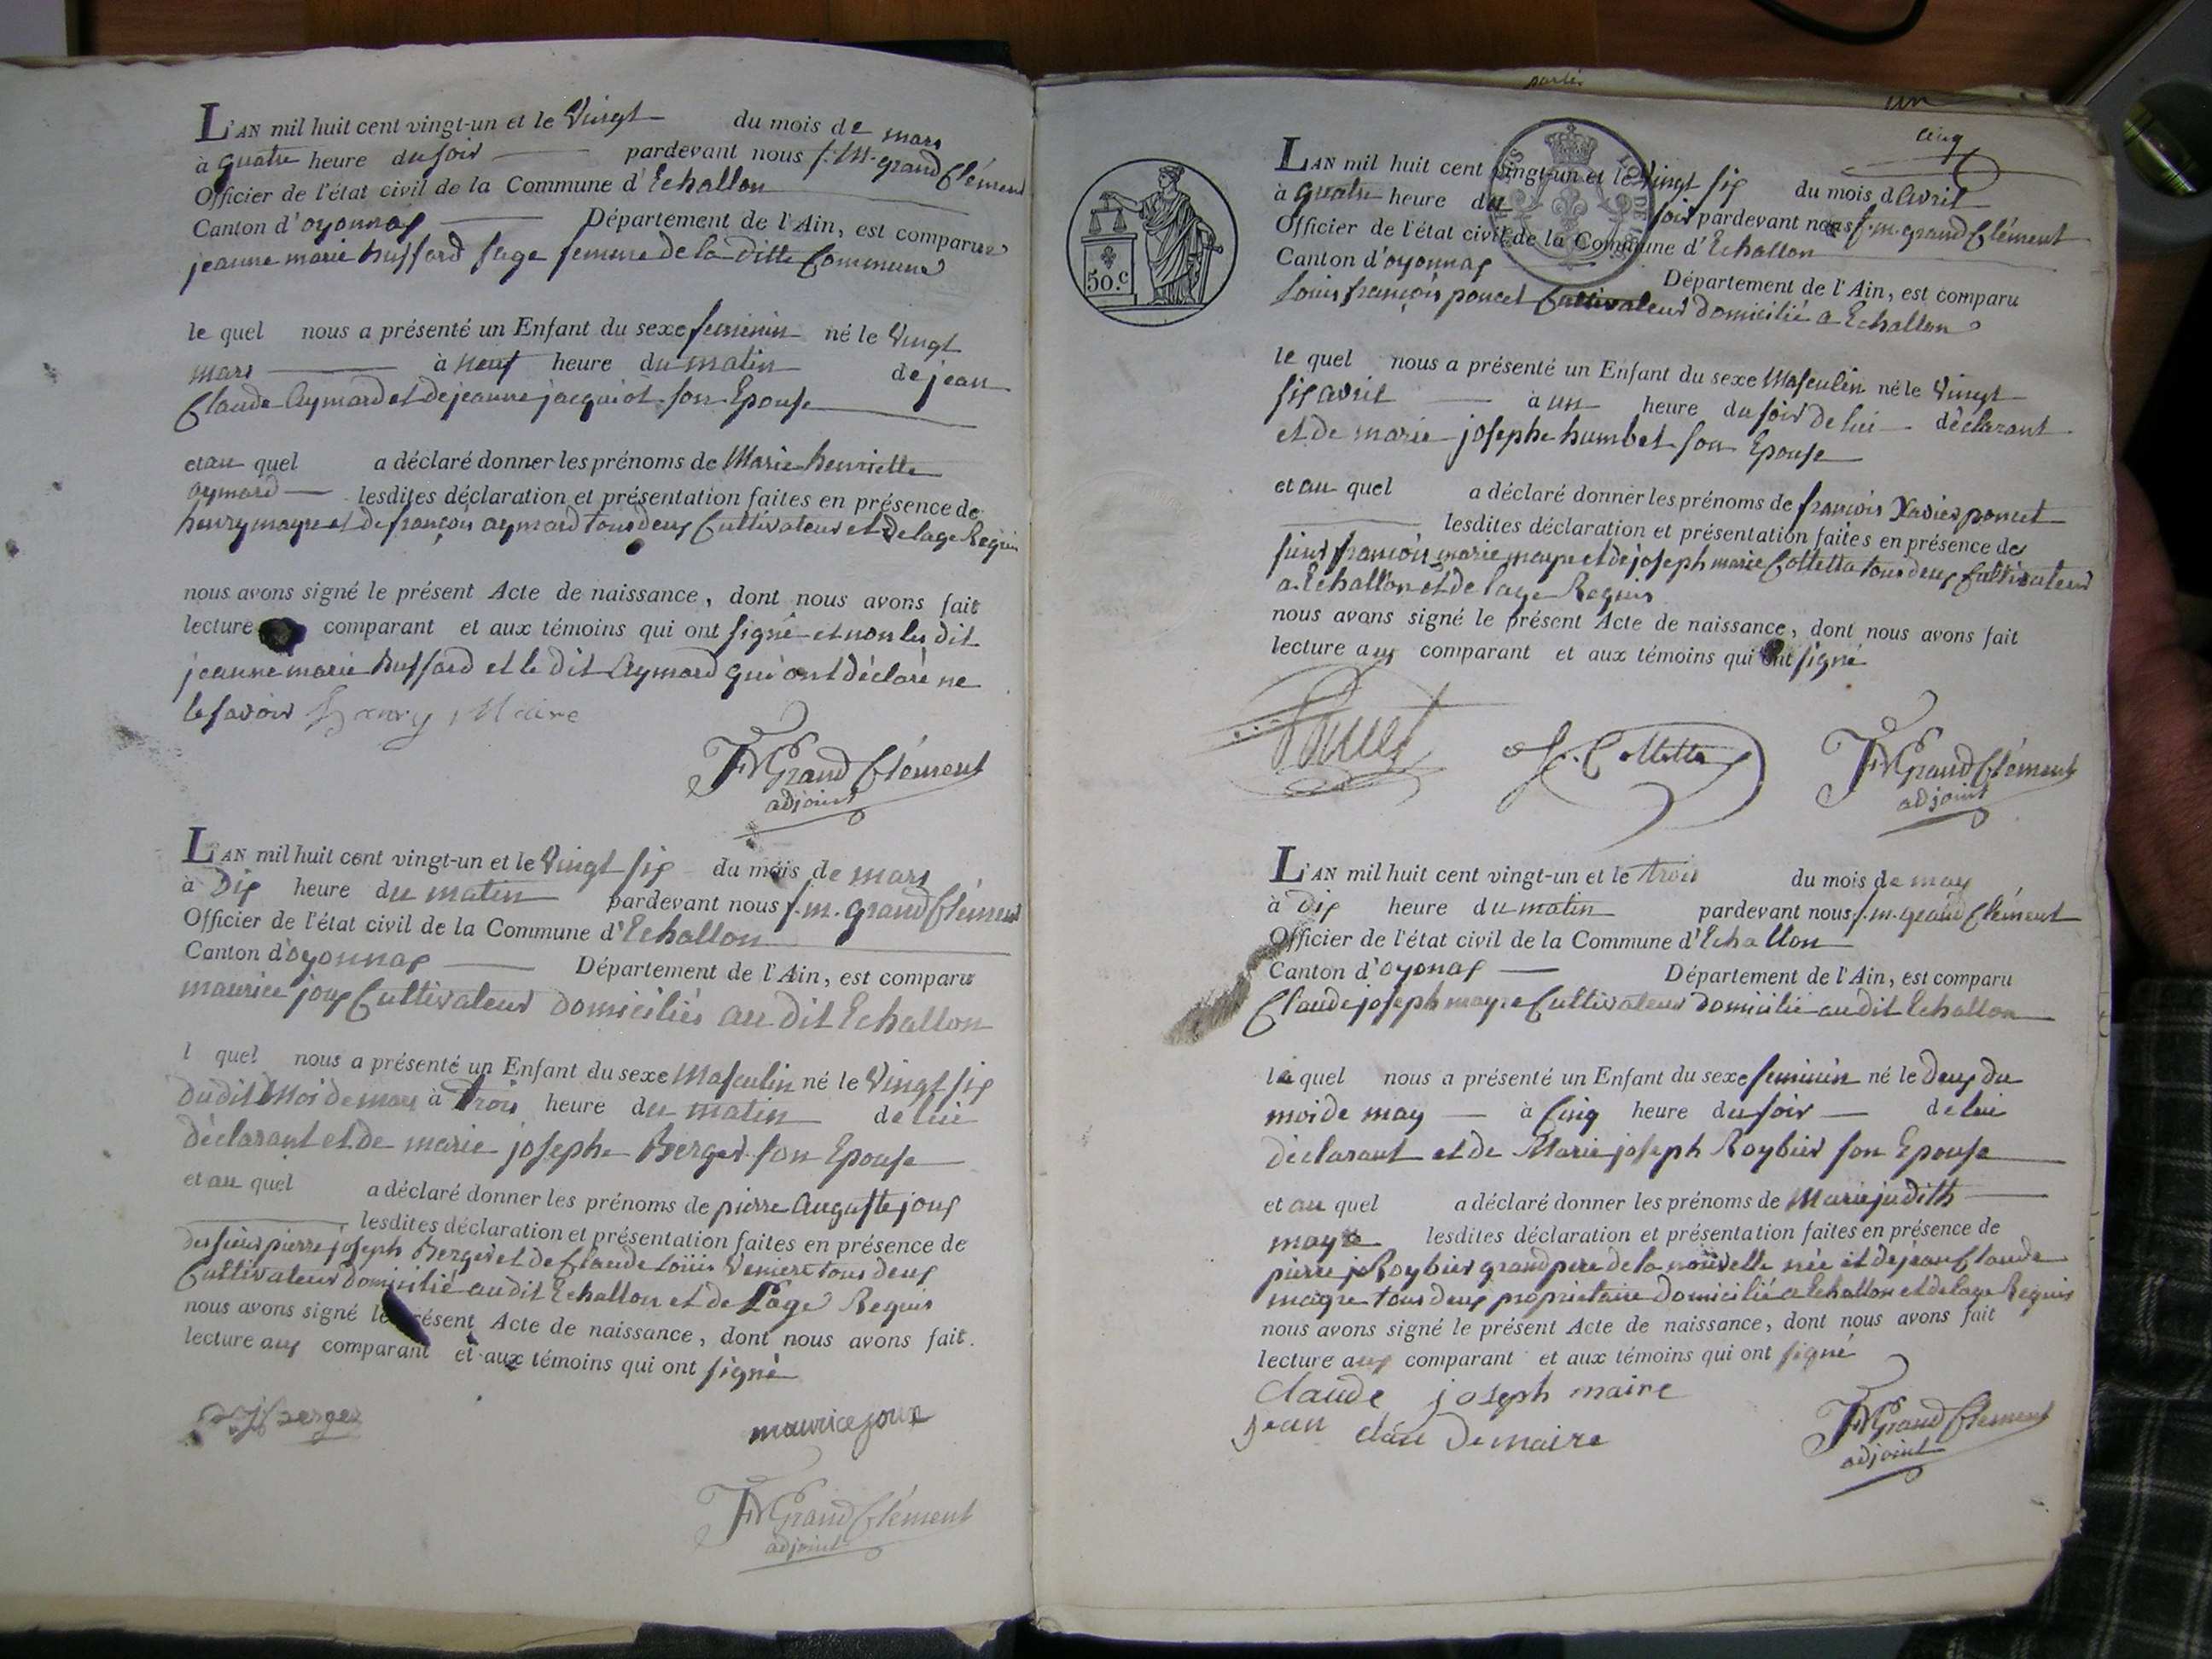 L'AN mil huit cent vingt-un et le Vingt du mois de mars
à quatre heure du soir pardevant nous f. m. grand Clément
Officier de l'état civil de la Commune d'Echallon
Canton d'oyonnax Département de l'Ain, est comparue
jeanne marie buffard sage femme de la ditte Commune
le quel nous a présenté un Enfant du sexe feminin né le Vingt
mars à neuf heure du matin de jean
Claude Aymard et de jeanne jacquiot son Epouse
et au quel a déclaré donner les prénoms de Marie henriette
aymard lesdites déclaration et présentation faites en présence de
henry mayre et de françois aymard tous deux Cultivateur et de lage Requis
nous avons signé le présent Acte de naissance, dont nous avons fait
lecture comparant et aux témoins qui ont signé et non les dit
jeanne marie buffard et le dit Aymard qui ont déclaré ne
le savoir henry Maire
FM Grand Clément
adjoint
L'AN mil huit cent vingt-un et le Vingt six du mois de mars
à Dix heure du matin pardevant nous f. m. grand Clément
Officier de l'état civil de la Commune d'Echallon
Canton d'oyonnax Département de l'Ain, est comparu
maurice joux Cultivateur domiciliés au dit Echallon
l quel nous a présenté un Enfant du sexe Masculin né le Vingt six
du dit moi de mars à trois heure du matin de lui
déclarant et de marie josephe Berger son Epouse
et au quel a déclaré donner les prénoms de pierre Auguste joux
lesdites déclaration et présentation faites en présence de
des sieur pierre joseph Berger et de Claude Louis tous deux
Cultivateur domicilié au dit Echallon et de Lage Requis
nous avons signé le présent Acte de naissance, dont nous avons fait.
lecture aux comparant et aux témoins qui ont signé
berger maurice joux
FM Grand Clément
adjoint
un
cinq
L'AN mil huit cent vingt-un et le Vingt six du mois d'avril
à quatre heure du soir pardevant nous f. m. grand Clément
Officier de l'état civil de la Commune d'Echallon
Canton d'oyonnax Département de l'Ain, est comparu
50.c
Louis françois poncet Cultivateur domicilié a Echallon
le quel nous a présenté un Enfant du sexe Masculin né le Vingt
six avril à un heure du soir de lui déclarant
et de marie josephe humbet son Epouse
et au quel a déclaré donner les prénoms de françois Xavier poncet
lesdites déclaration et présentation faites en présence de
sieur françois marie mayre et de joseph marie Colletta tous deux Cultivateur
a Echallon et de lage Requis
nous avons signé le présent Acte de naissance, dont nous avons fait
lecture aux comparant et aux témoins qui ont signé
Poncet J. Colletta FM Grand Clément
adjoint
L'AN mil huit cent vingt-un et le trois du mois de may
à dix heure du matin pardevant nous f. m. grand Clément
Officier de l'état civil de la Commune d'Echallon
Canton d'oyonax Département de l'Ain, est comparu
Claude joseph mayre Cultivateur domicilié au dit Echallon
le quel nous a présenté un Enfant du sexe feminin né le deux du
moi de may à Cinq heure du soir de lui
déclarant et de Marie joseph Roybier son Epouse
et au quel a déclaré donner les prénoms de Marie judith
mayre lesdites déclaration et présentation faites en présence de
pierre Roybier grand pere de la nouvelle née et de jean Claude
mayre tous deux proprietaire domicilié a Echallon et de lage Requis
nous avons signé le présent Acte de naissance, dont nous avons fait
lecture aux comparant et aux témoins qui ont signé
Claude joseph maire
jean clau de maire
FM Grand Clément
adjoint